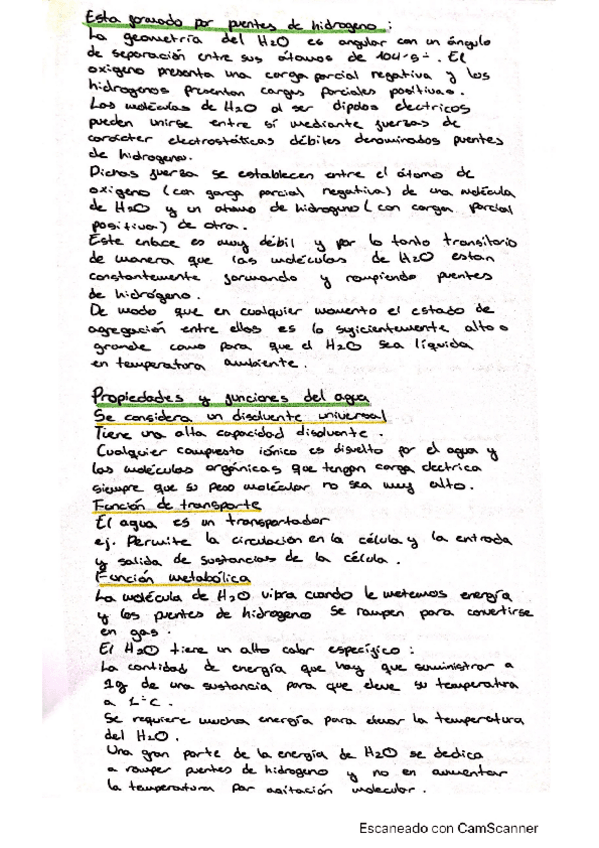 Esta formado por puentes de hidrogeno :
La geometría del H2O es angular con un ángulo
de separación entre sus átomos de 104'5º. El
oxigeno presenta una carga parcial negativa y los
hidrogenos presentan cargas parciales positivas.
Las moléculas de H2O al ser dipolos electricos
pueden unirse entre sí mediante fuerzas de
carácter electrostáticas débiles denominados puentes
de hidrogeno.
Dichas fuerza se establecen entre el átomo de
oxigeno (con garga parcial negativa) de una molécula
de H2O y un atomo de hidrogeno (con carga parcial
positiva) de otra.
Este enlace es muy débil y por lo tanto transitorio
de manera que las moléculas de H2O estan
constantemente formando y rompiendo puentes
de hidrógeno.
De modo que en cualquier momento el estado de
agregación entre ellos es lo suficientemente alto o
grande como para que el H2O sea líquida
en temperatura ambiente.
Propiedades y funciones del agua
Se considera un disolvente universal
Tiene una alta capacidad disolvante.
Cualquier compuesto iónico es disuelto por el agua y
las moléculas orgánicas que tengan carga electrica
siempre que su peso molécular no sea muy alto.
Función de transporte
El agua es un transportador
ej. Permite la circulación en la célula y la entrada
y salida de sustancias de la célula.
Función metabólica
La molécula de H2O vibra cuando le metemos energía
y los puentes de hidrogeno se rompen para convertirse
en gas.
El H2O tiene un alto calor específico :
La cantidad de energía que hay que suministrar a
1g de una sustancia para que eleve su temperatura
a 1ºC.
Se requiere mucha energía para elevar la temperatura
del H2O.
Una gran parte de la energía de H2O se dedica
a romper puentes de hidrogeno y no en aumentar
la temperatura por agitación molecular.
Escaneado con CamScanner